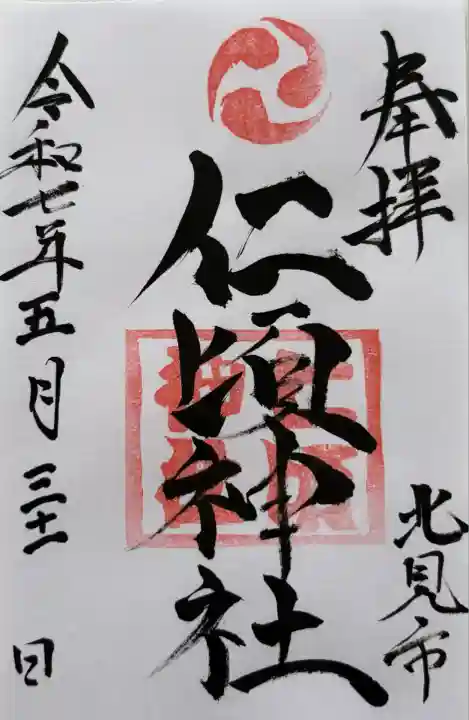 奉拝
北見市
仁頃神社
令和七年五月三十一日